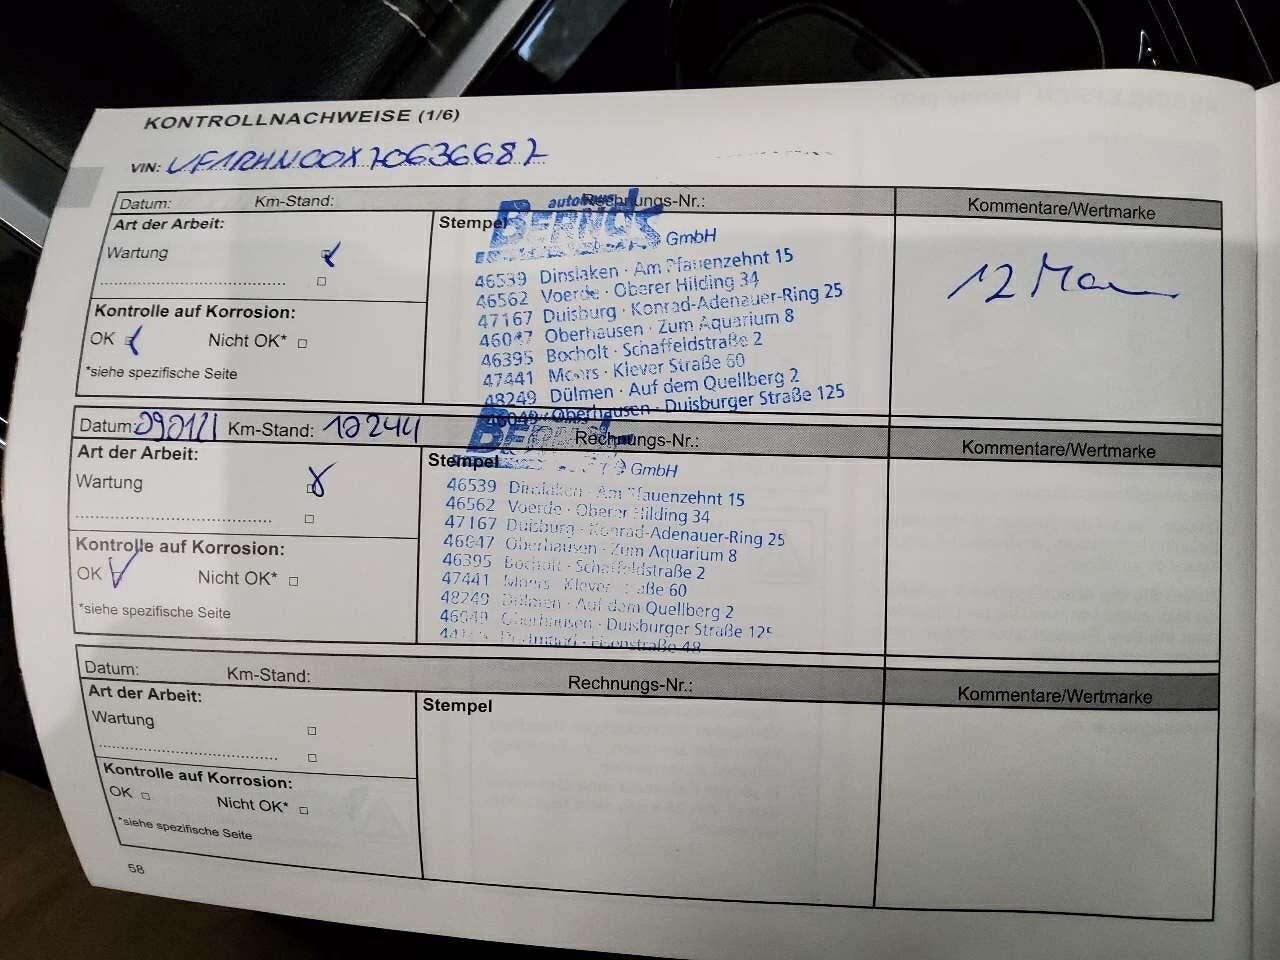 KONTROLLNACHWEISE (1/6)
VIN: VF1RHN00X70636687
Datum: Km-Stand: Rechnungs-Nr.: Kommentare/Wertmarke
Art der Arbeit:
Wartung
Kontrolle auf Korrosion:
OK Nicht OK*
*siehe spezifische Seite
Stempel
autohaus
BERNDS
GmbH
46539 Dinslaken · Am Pfauenzehnt 15
46562 Voerde · Oberer Hilding 34
47167 Duisburg · Konrad-Adenauer-Ring 25
46047 Oberhausen · Zum Aquarium 8
46395 Bocholt · Schaffeldstraße 2
47441 Moers · Klever Straße 60
48249 Dülmen · Auf dem Quellberg 2
46049 Oberhausen · Duisburger Straße 125
12
Datum: Km-Stand: Rechnungs-Nr.: Kommentare/Wertmarke
Art der Arbeit:
Wartung
Kontrolle auf Korrosion:
OK Nicht OK*
*siehe spezifische Seite
Stempel
BERNDS
GmbH
46539 Dinslaken · Am Pfauenzehnt 15
46562 Voerde · Oberer Hilding 34
47167 Duisburg · Konrad-Adenauer-Ring 25
46047 Oberhausen · Zum Aquarium 8
46395 Bocholt · Schaffeldstraße 2
47441 Moers · Klever Straße 60
48249 Dülmen · Auf dem Quellberg 2
46049 Oberhausen · Duisburger Straße 125
Dortmund · Eisenstraße 48
Datum: Km-Stand: Rechnungs-Nr.: Kommentare/Wertmarke
Art der Arbeit:
Wartung
Kontrolle auf Korrosion:
OK Nicht OK*
*siehe spezifische Seite
Stempel
58